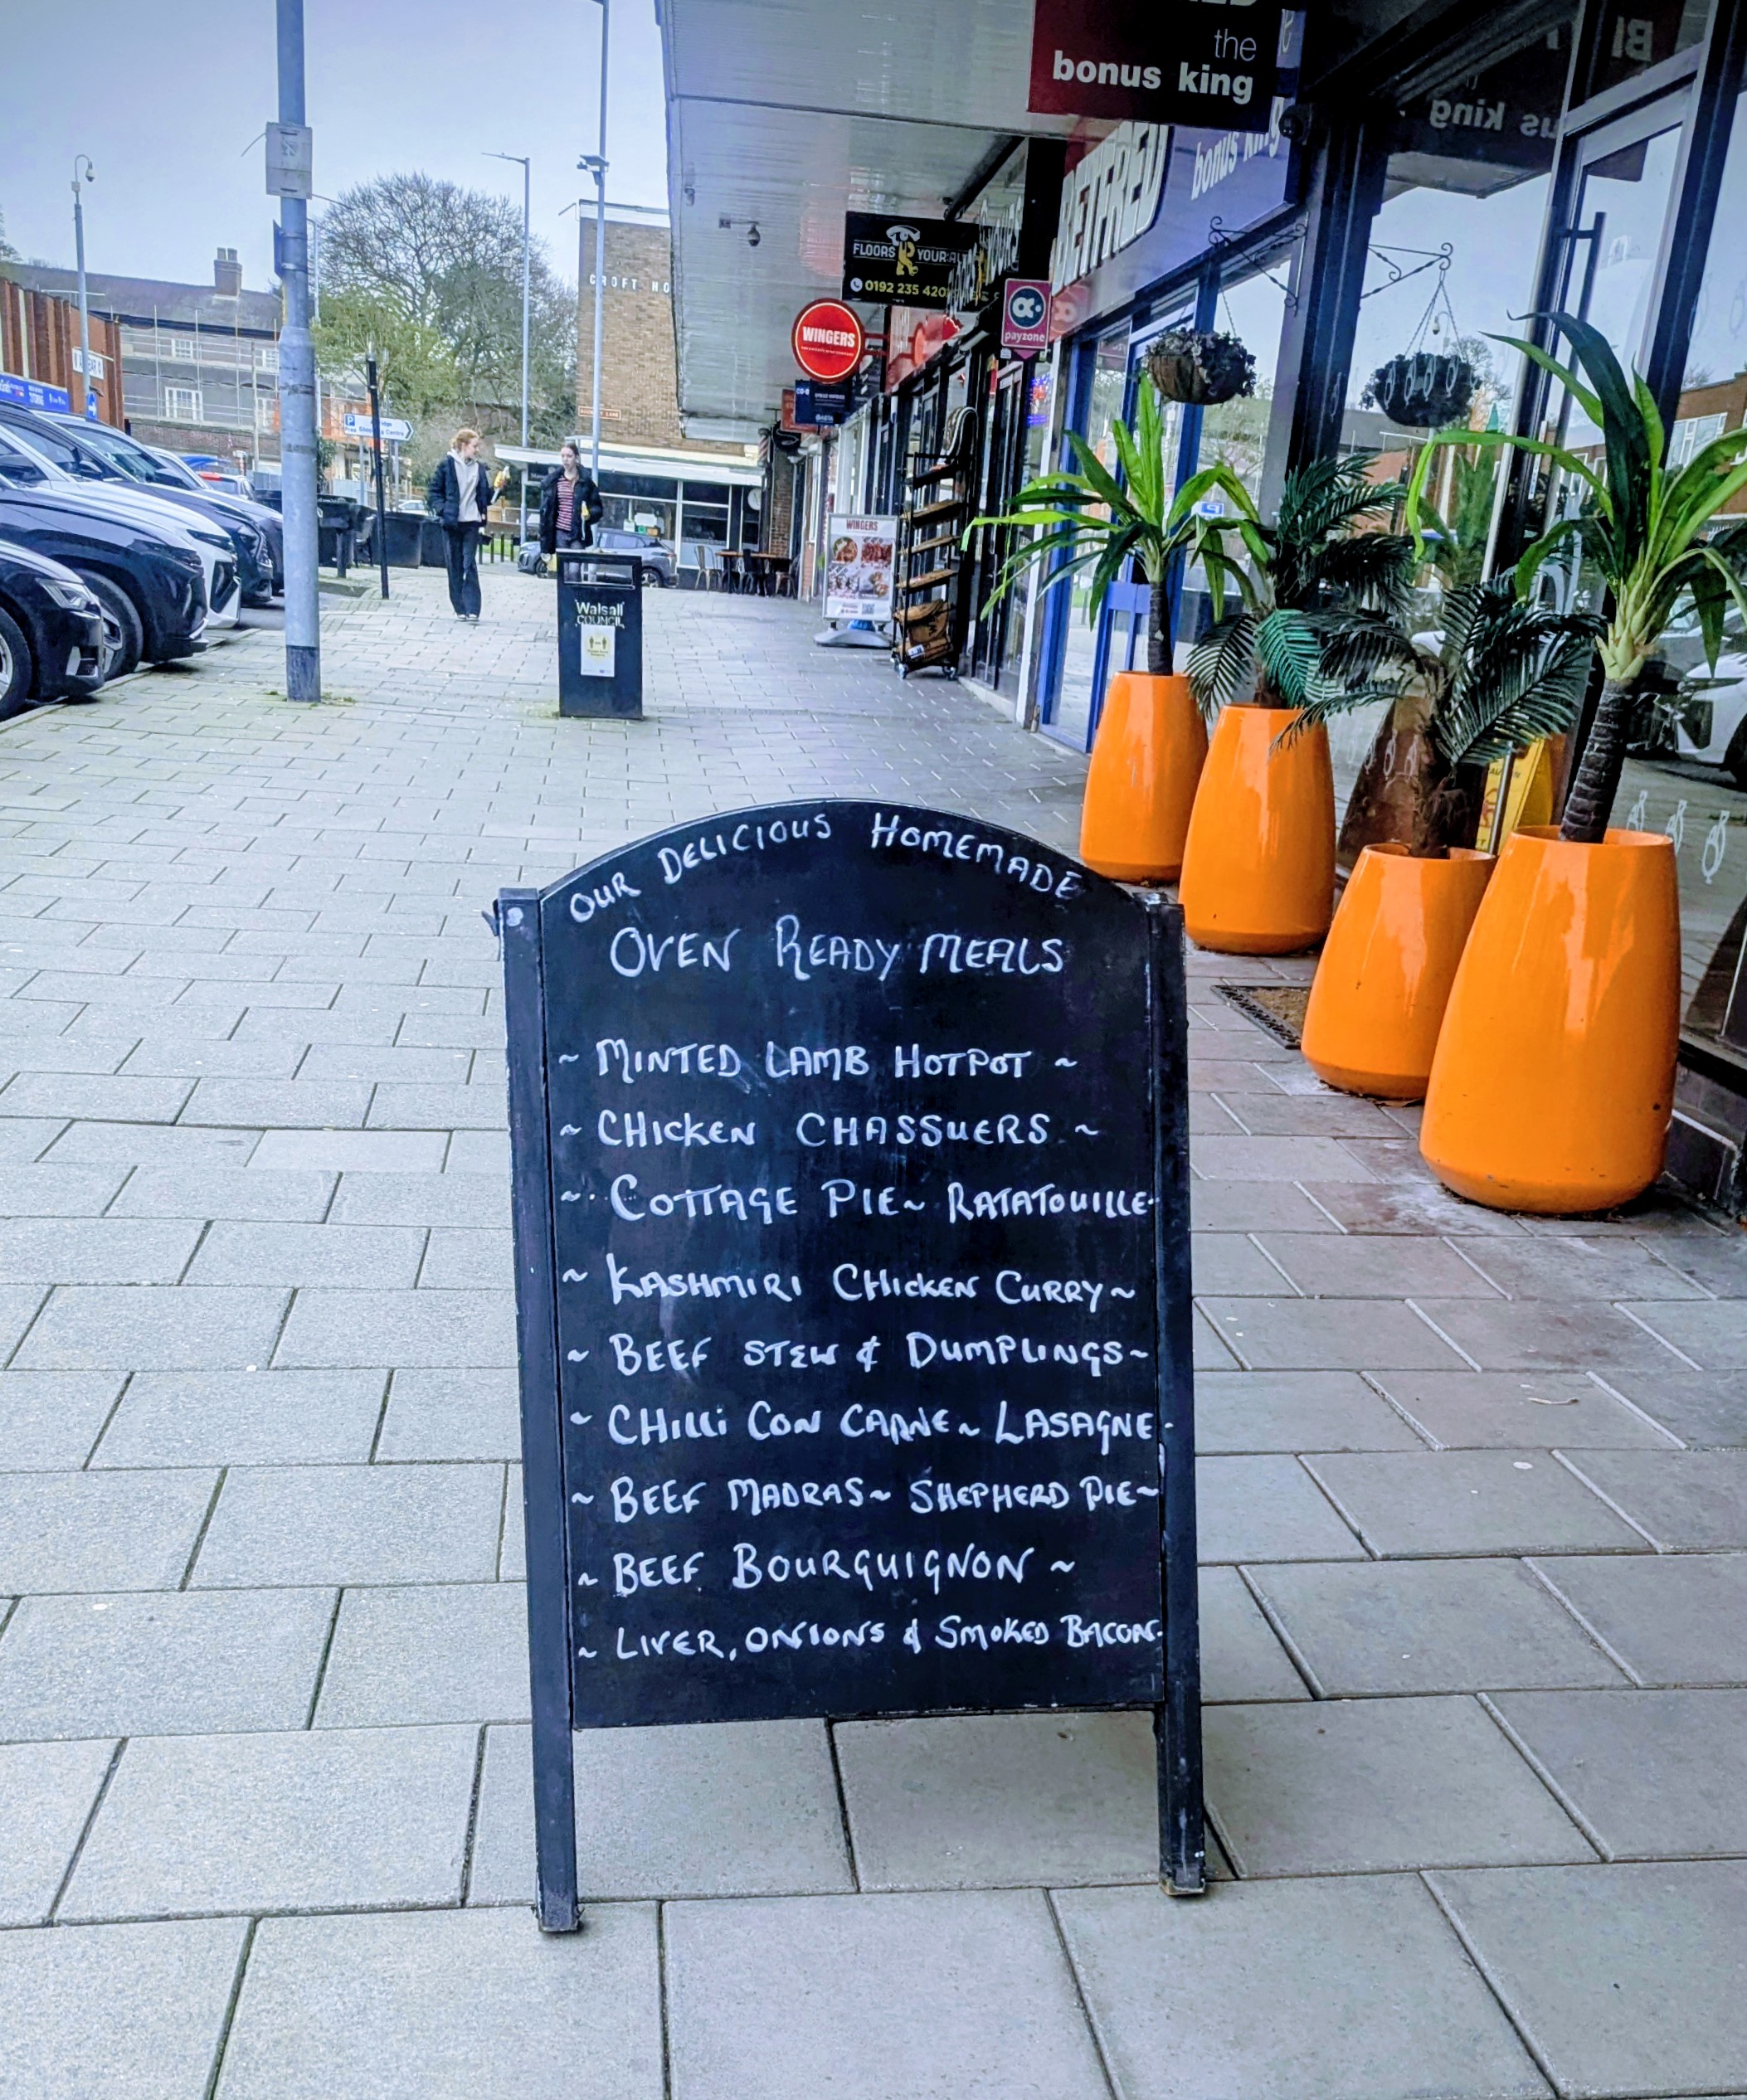 the
bonus king
BETFRED
bonus king
FLOORS R YOURS
0192 235 420
WINGERS
payzone
CROFT HO
WINGERS
Walsall
COUNCIL
OUR DELICIOUS HOMEMADE
OVEN READY MEALS
~ MINTED LAMB HOTPOT ~
~ CHICKEN CHASSUERS ~
~ COTTAGE PIE ~ RATATOUILLE ~
~ KASHMIRI CHICKEN CURRY ~
~ BEEF STEW & DUMPLINGS ~
~ CHILLI CON CARNE ~ LASAGNE ~
~ BEEF MADRAS ~ SHEPHERD PIE ~
~ BEEF BOURGUIGNON ~
~ LIVER, ONIONS & SMOKED BACON ~